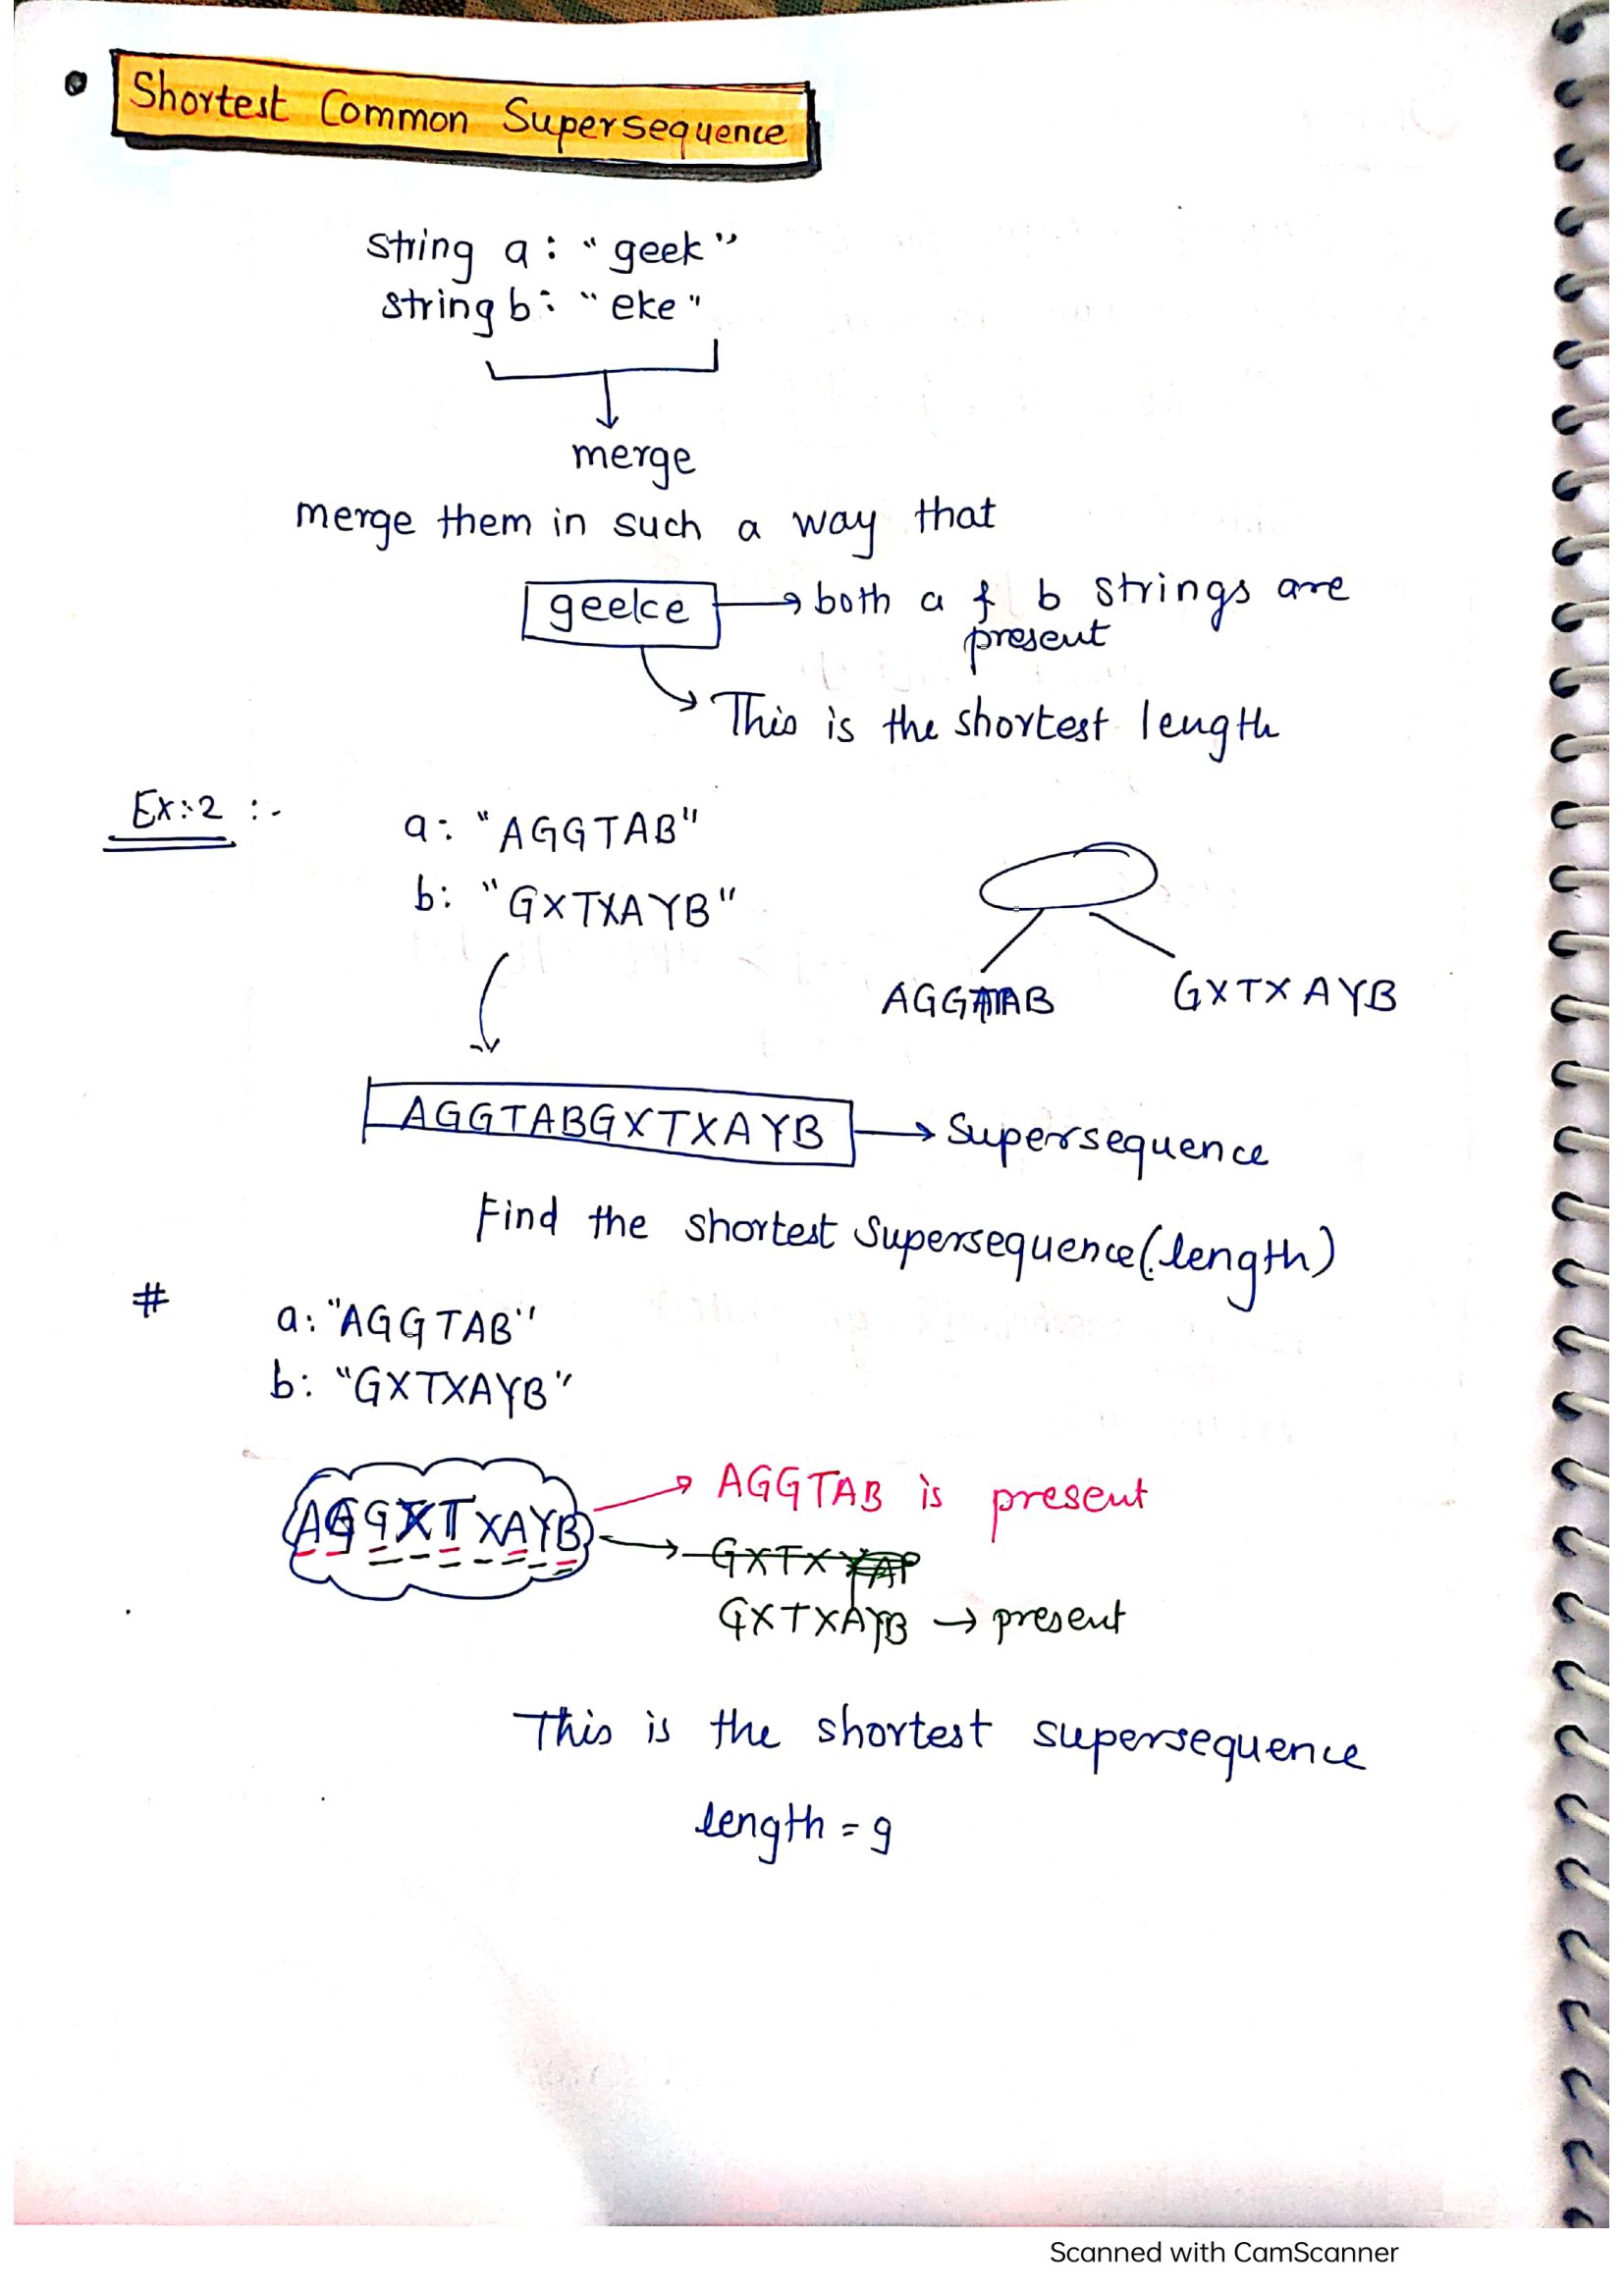 Shortest Common Supersequence
string a : "geek"
string b : "eke"
merge
merge them in such a way that
geeke → both a & b strings are
present
This is the shortest length
Ex:2 :-
a: "AGGTAB"
b: "GXTXAYB"
AGGTAB GXTXAYB
AGGTABGXTXAYB → Supersequence
Find the shortest supersequence(length)
# a: "AGGTAB"
b: "GXTXAYB"
AGGXTXAYB → AGGTAB is present
→ GXTX
GXTXAYB → present
This is the shortest supersequence
length = 9
Scanned with CamScanner